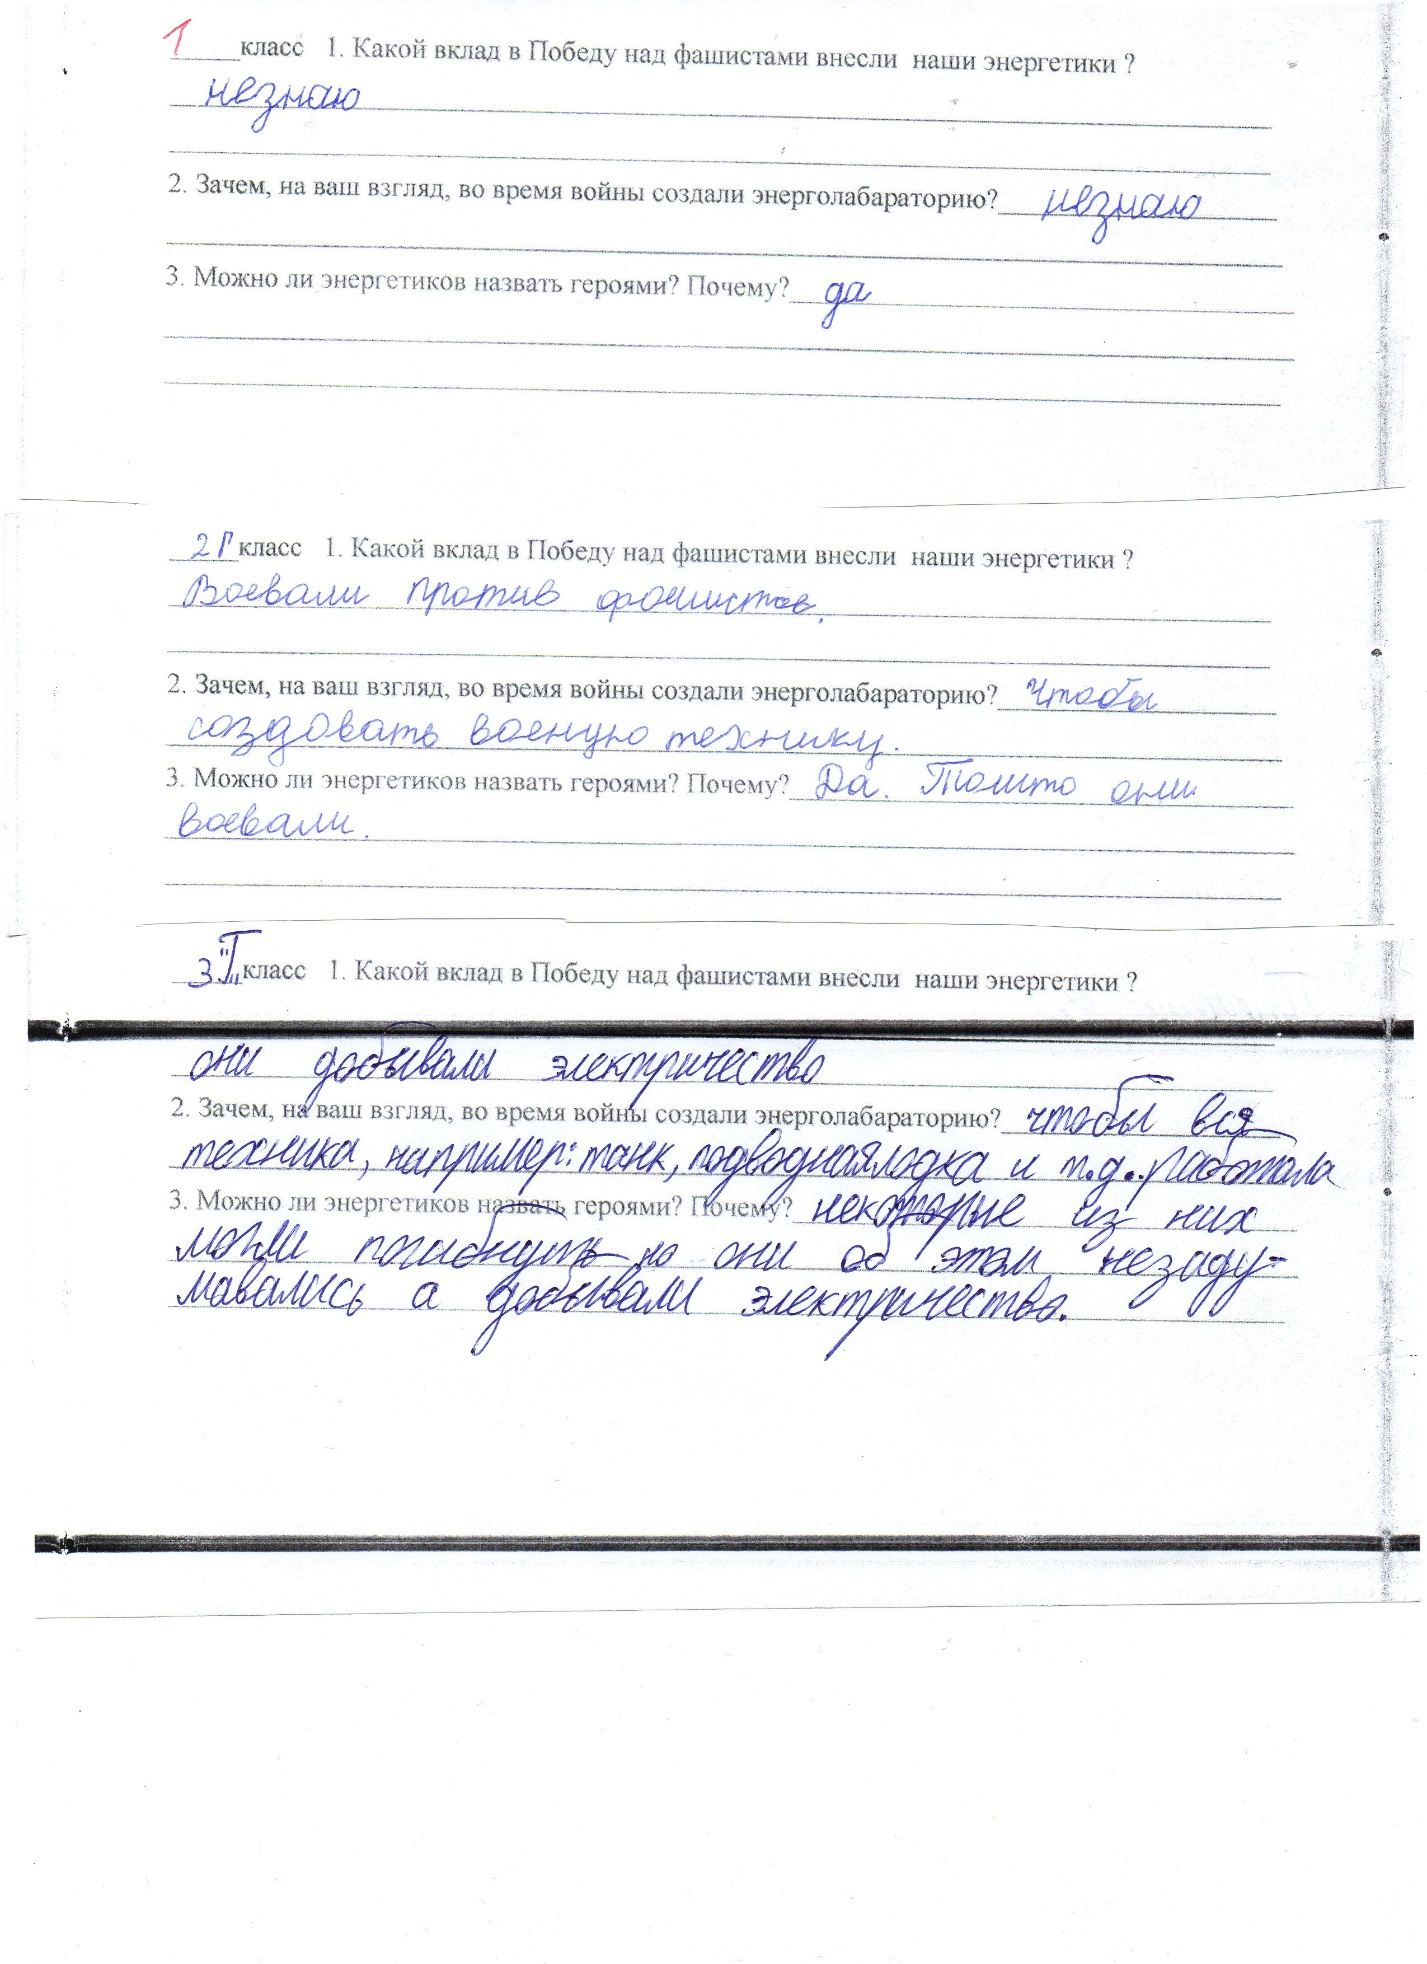 1 класс 1. Какой вклад в Победу над фашистами внесли наши энергетики ?
незнаю
2. Зачем, на ваш взгляд, во время войны создали энерголабараторию? незнаю
3. Можно ли энергетиков назвать героями? Почему? да
2Г класс 1. Какой вклад в Победу над фашистами внесли наши энергетики ?
Воевали против фошистов.
2. Зачем, на ваш взгляд, во время войны создали энерголабараторию? Чтобы
создовать военую технику.
3. Можно ли энергетиков назвать героями? Почему? Да. Тошто они
воевали.
3"Г" класс 1. Какой вклад в Победу над фашистами внесли наши энергетики ?
они добывали электричество
2. Зачем, на ваш взгляд, во время войны создали энерголабараторию? чтобы вся
техника, например: танк, подводнаялодка и т.д.. работала
3. Можно ли энергетиков назвать героями? Почему? некоторые из них
могли погибнуть но они об этом незаду-
мавались а добывали электричество.